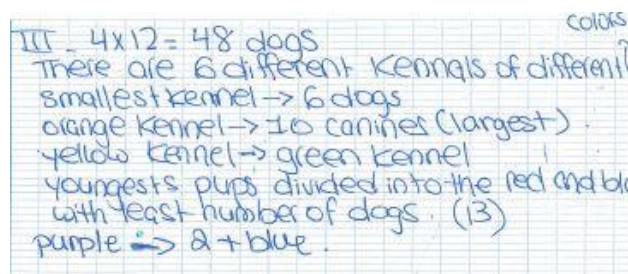 colors
III - 4x12= 48 dogs
There are 6 different kennals of different
smallest kennel -> 6 dogs
orange kennel -> 10 canines (largest).
yellow kennel -> green kennel
youngests pups divided into the red and blu
with least number of dogs. (13)
purple => 2 + blue.